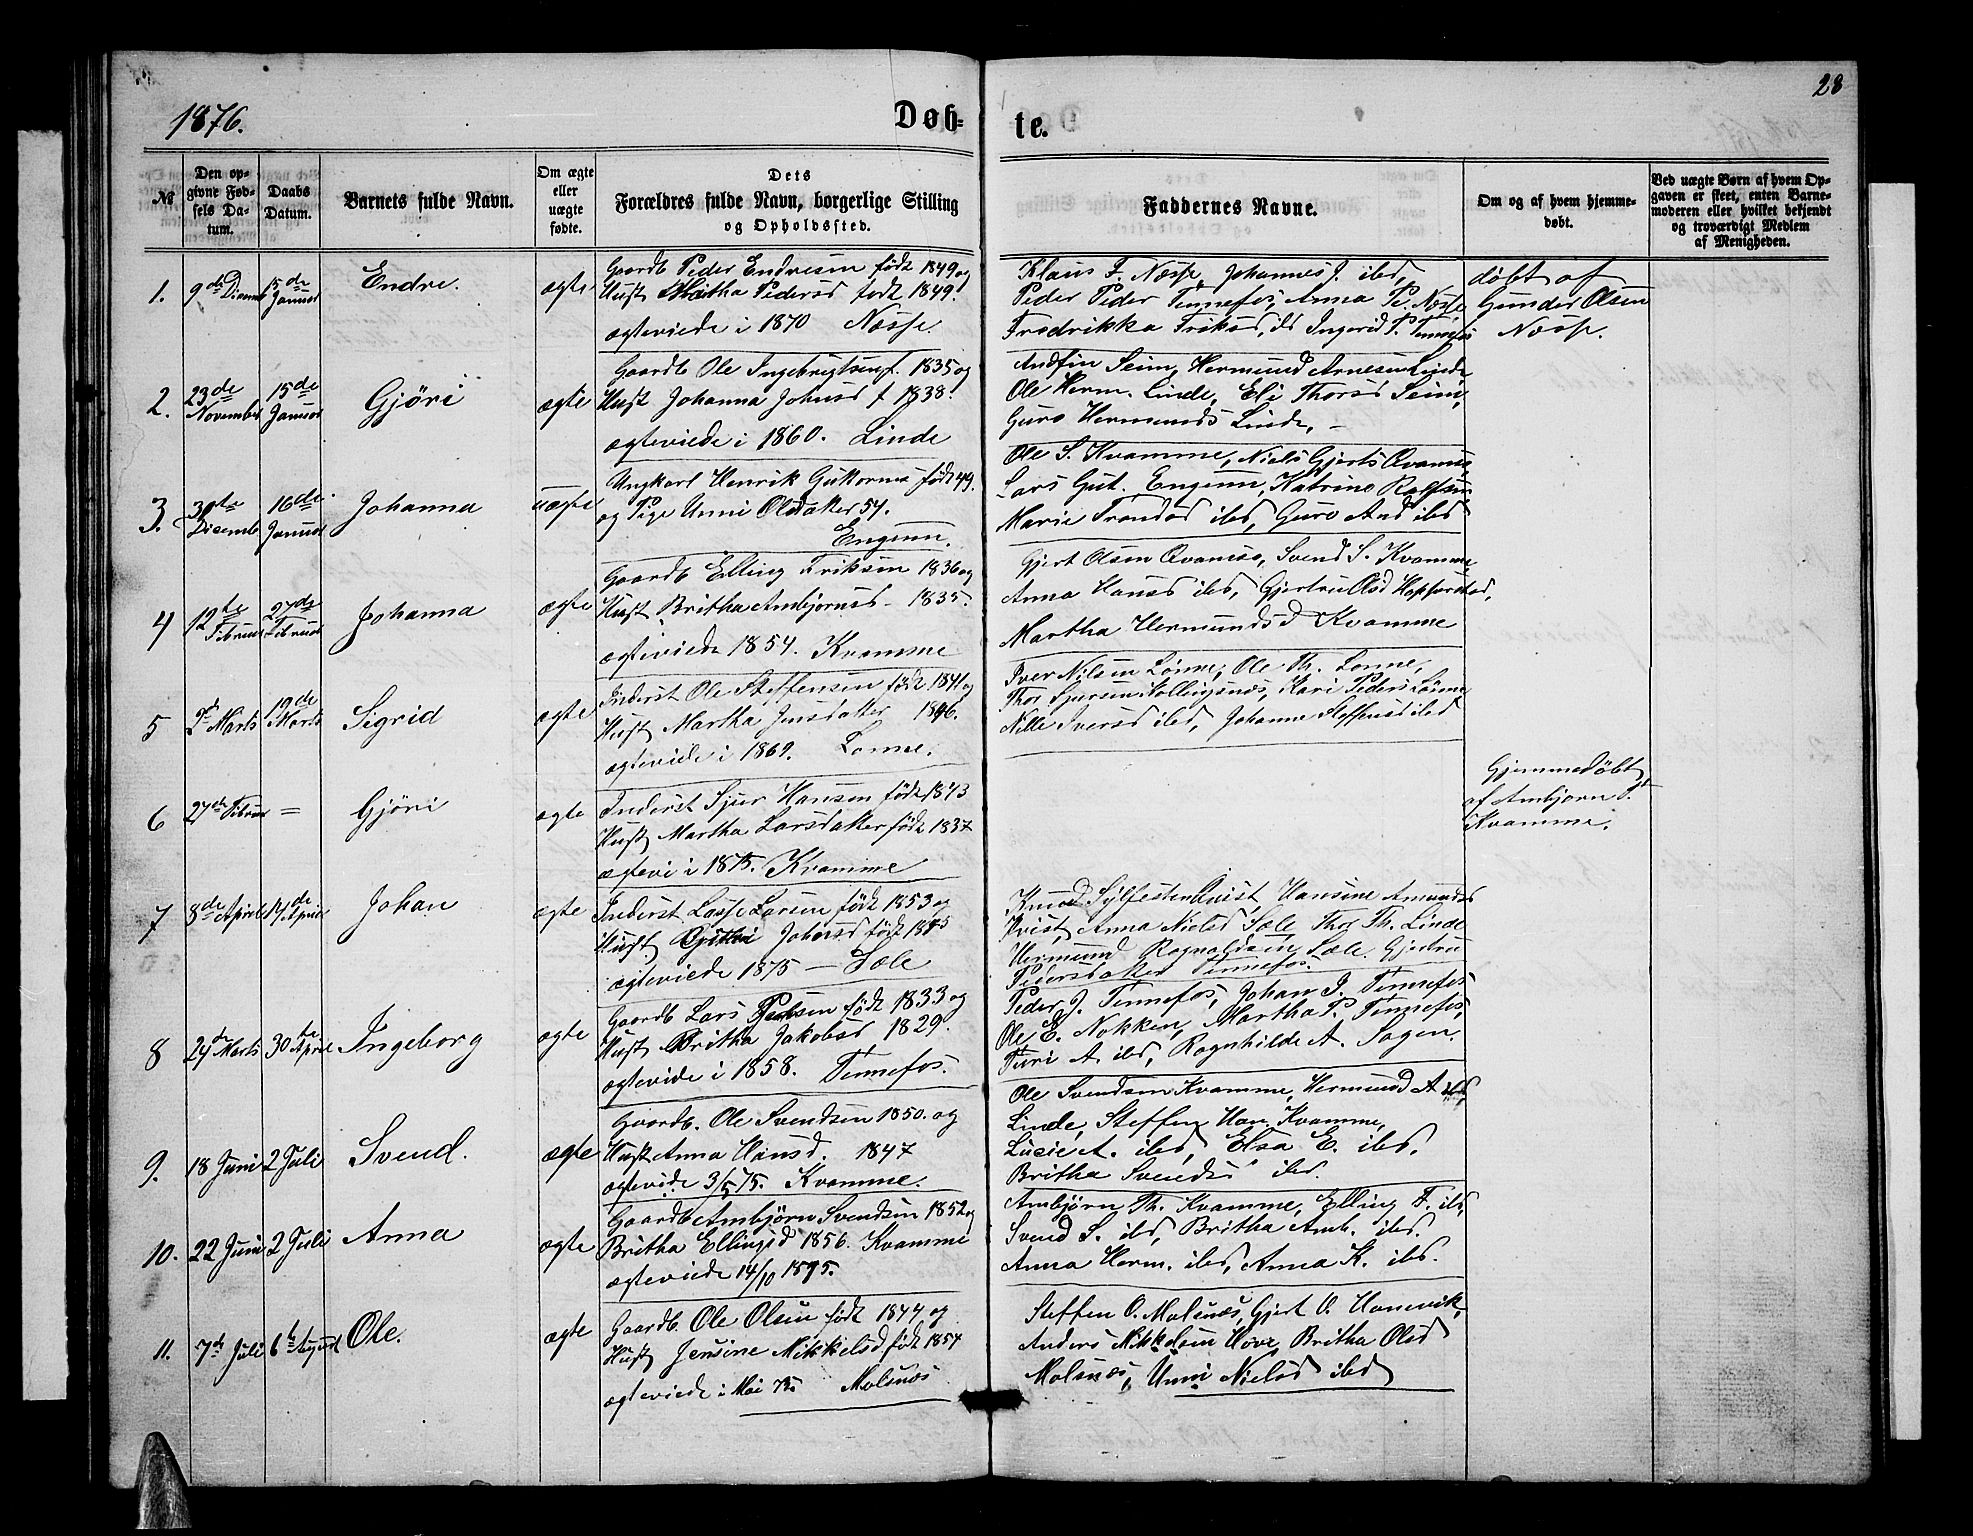 1876.
Døb-
te.
28
№
Den op-
givne Fød-
sels Da-
tum.
Daabs
Datum.
Barnets fulde Navn.
Om ægte
eller
uægte
fødte.
Dets
Forældres fulde Navn, borgerlige Stilling
og Opholdssted.
Faddernes Navne.
Om og af hvem hjemme-
døbt.
Ved uægte Børn af hvem Op-
gaven er skeet, enten Barne-
moderen eller hvilket bekjendt
og troværdigt Medlem
af Menigheden.
1. 9de Decemb 15de Januar Endre. ægte
Gaardb Peder Endresen født 1849 og
Hust Pedersd født 1849.
ægteviede i 1870 Næsse.
Klaus F. Næsse, Johannes J. ibd,
Peder Peder Tennefos, Anna Pe. Næsse
Fredrikka Eriksd, ib Ingerid P. Tennefos
døbt af
Gunder Olsen
Næsse.
2. 23de November 15de Januar Gjöri ægte
Gaardb Ole Ingebrigtsen f. 1835 og
Hust Johanna Johnsd f 1838.
ægteviede i 1860. Linde
Andfin Seim, Hermund Arnesen Linde
Ole Herm. Linde, Eli Thorsd Seim,
Guro Hermunds Linde, –
3. 31te Decemb 16de Januar Johanna uægte
Ungkarl Henrik Guttorms født 49.
og Pige Unni Olsdatter 54.
Engum.
Ole S. Kvamme, Niels Gjerts Qvamsø,
Lars Gut. Engum, Katrine
Marie Trondsd ibd, Guro And ibd
4 12te Februar 27de Februar Johanna ægte
Gaardb Elling Eriksen 1836 og
Hust Britha Ambjørnsd – 1835.
ægteviede 1854. Kvamme
Gjert Olsen Qvamsø, Svend S. Kvamme
Anna Hansd ibd, Gjertru Olsd Hopperstad,
Martha Hermundsd Kvamme
5 2d Marts 19de Marts Sigrid ægte
Inderst Ole Steffensen født 1841 og
Hust Martha Jensdatter 1846.
ægteviede i 1869. Lonne.
Iver Nilsen Lønne, Ole Th. Lonne,
Thor Sjursen Kollingsnæs, Kari Peders Lønne
Nille Iversd ibd, Johanne Steffensd ibd
6 27de Februar = Gjöri ægte
Inderst Sjur Hansen født 1843
Hust Martha Larsdatter født 1837
ægtevi i 1875. Kvamme
Gjemmedøbt
af Ambjørn
Kvamme.
7 8de April 14de April Johan ægte
Inderst Lasse Larsen født 1853 og
Hust Johansd født 1845
ægteviede 1875 — Sæle
Knud Sylfesten Qvist, Hansine Amunds
Kvist, Anna Nielsd Sæle, Thor Th. Linde
Hermund Ragnaldsen Sæle. Gjertru
Pedersdatter Tennefos.
8 24de Marts 30te April Ingeborg ægte
Gaardb Lars Pedersen født 1833 og
Hust Britha Jakobsd 1829.
ægtevide i 1858. Tennefos.
Peder J. Tennefos, Johan J. Tennefos
Ole E. Nokken, Martha P. Tennefos,
Turi A. ibd, Ragnhilde A. Sagen.
9. 18 Juni 2 Juli Svend. ægte
Gaardb. Ole Svendsen 1850. og
Hust Anna Hansd. 1847
ægtevide 3/5 75. Kvamme.
Ole Svendsen Kvamme, Hermund A
Linde, Steffen Han. Kvamme,
Lucie A. ibd, Elsa E. ibd.
Britha Svends ibd.
10. 22 Juni 2 Juli Anna ægte
Gaardb Ambjörn Svendsen 1852 og
Britha Ellingsd 1856. Kvamme
ægteviede 14/10 1875.
Ambjörn Th. Kvamme, Elling E. ibd,
Svend S. ibd, Britha Amb. ibd.
Anna Herm. ibd, Anna K. ibd.
11. 7de Juli 6te August Ole. ægte
Gaardb. Ole Olsen født 1844 og
Hust Jensine Mikkelsd født 1854
ægteviede i Mai 75. Malsnæs
Steffen O. Malsnæs, Gjert O. Hanevik,
Anders Mikkelsen Hove, Britha Olsd
Malsnæs, Unni Nielsd ibd